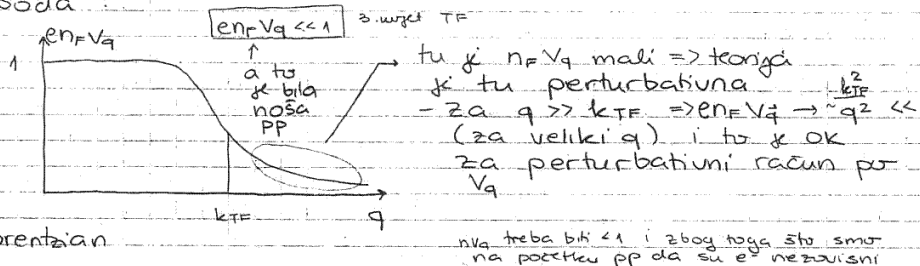 en_F V_q << 1 3. uvjet TF
en_F V_q
1
↑
a to
je bila
naša
PP
tu je n_F V_q mali => teorija
je tu perturbativna
- za q >> k_TF => en_F V_q → ~ k_TF^2/q^2 <<
(za veliki q) i to je ok
za perturbativni račun po
V_q
k_TF q
orentzian
nv_q treba biti <1 i zbog toga što smo
na početku pp da su e⁻ nezavisni